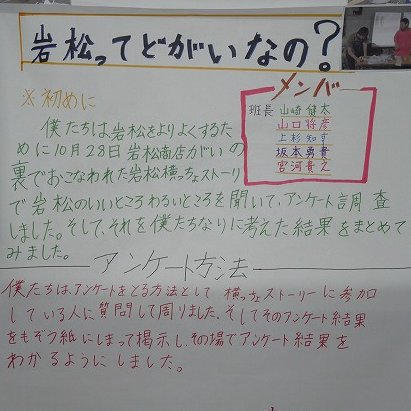 岩松ってどがいなの？
メンバー
班長 山崎 健太
山口将彦
上杉知す
坂本勇貴
宮河貴之
※初めに
僕たちは岩松をよりよくするた
めに10月28日岩松商店がいの
裏でおこなわれた岩松横っちょストーリー
で岩松のいいところわるいところを聞いて、アンケート調査
しました。そして、それを僕たちなりに考えた結果をまとめて
みました。
アンケート方法
僕たちは、アンケートをとる方法として 横っちょストーリーに参加
している人に質問して周りました。そしてそのアンケート結果
をもぞう紙にしまって掲示し、その場でアンケート結果を
わかるようにしました。